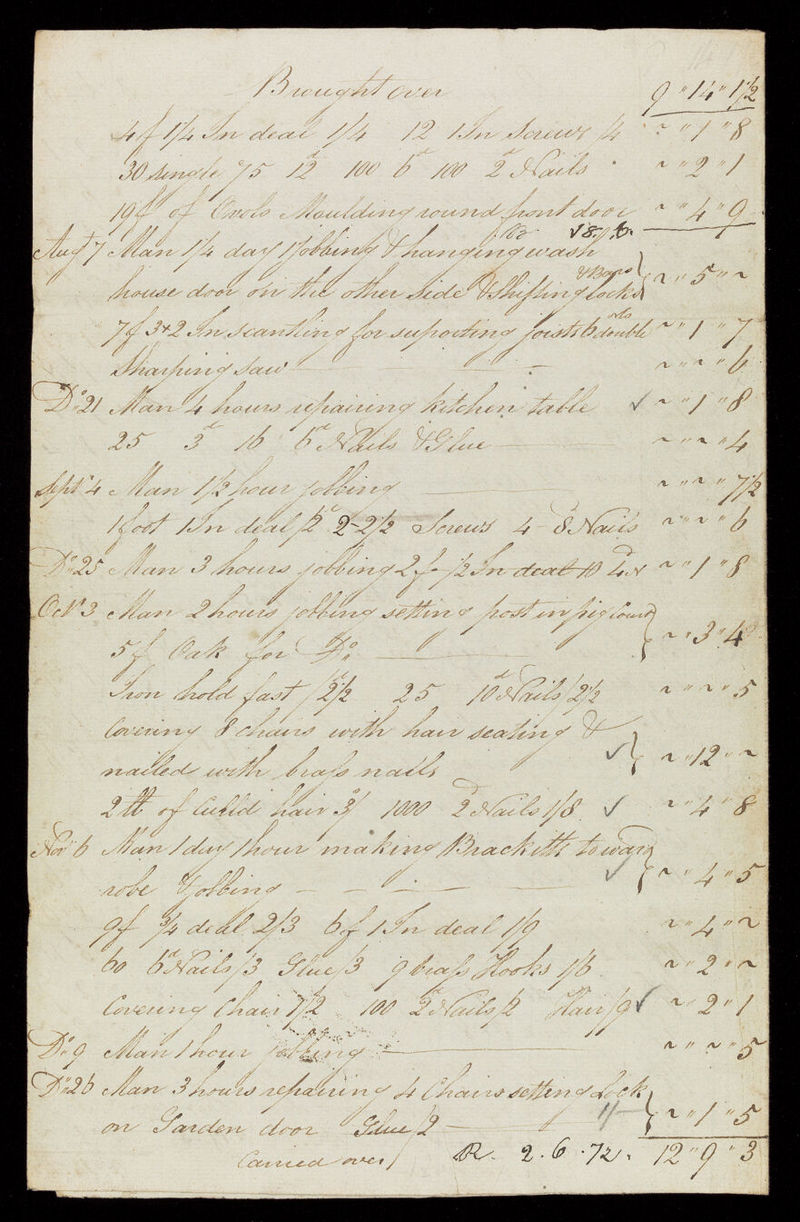 Brought over 9 " 14 " 1 1/2
4 f 1 1/4 In deal 1/4 12 1 In Screws /4 ~ " 1 " 8
30 single 75 12d 100 6d 100 2d Nails ~ " 2 " 1
19 f of Ovolo Moulding round front door ~ " 4 " 9
Augt 7 Man 1 1/4 day jobbing & hanging wash
house door on the other side & Shifting Locks & Bars ~ " 5 " ~
7 f 3 x 2 In scantling for suporting joists 6 double ~ " 1 " 7
Sharping saw ~ " ~ " 6
Do 21 Man 4 hours repairing kitchen table ✓ ~ " 1 " 8
25 3d 16 6d Nails & Glue ~ " ~ " 4
Sept 4 Man 1 1/2 hour jobbing ~ " ~ " 7 1/2
1 foot 1 In deal /2 2 - 2 1/2 Screws 4 - 8d Nails ~ " ~ " 6
Do 25 Man 3 hours jobbing 2 f 1/2 In deal 10 4d N ~ " 1 " 8
Octr 3 Man 2 hours jobbing setting post in pig Court
5 f Oak for Do ~ " 3 " 4
Iron hold fast /2 1/2 25 10d Nails /2 1/2 ~ " ~ " 5
Covering 8 chairs with hair seating &
nailed with brass nails ✓ ~ " 12 " ~
2 lb of Curld hair 3/ 1000 2d Nails 1/8 ✓ ~ " 4 " 8
Novr 6 Man 1 day 1 hour making Bracketts to ward
robe & jobbing ✓ ~ " 4 " 5
9 f 3/4 deal 2/3 6 f 1 In deal 1/9 ~ " 4 " ~
60 6d Nails /3 Glue /3 9 brass Hooks 1/6 ~ " 2 " ~
Covering Chair 1/2 100 2d Nails /2 Hair /9 ✓ ~ " 2 " 1
Do 9 Man 1 hour jobbing ~ " ~ " 5
Do 26 Man 3 hours repairing 4 Chairs setting Lock
on Garden door Glue /2 1/- ~ " 1 " 5
Carried over R. 2 . 6 . 7 1/2 . 12 " 9 " 3